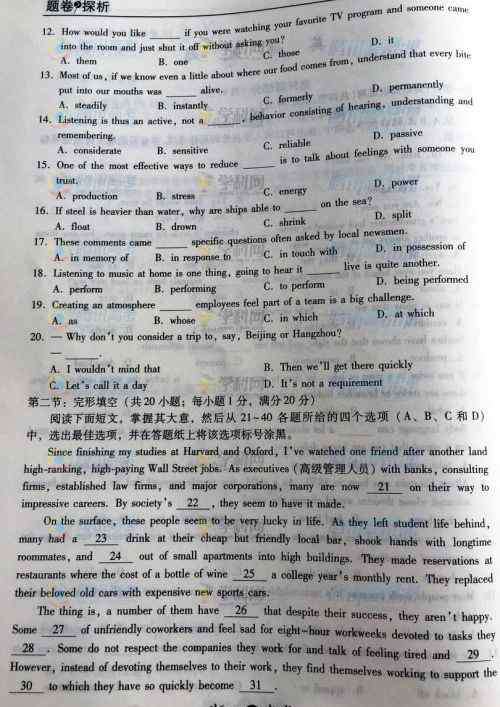 题卷之探析
12. How would you like ____ if you were watching your favorite TV program and someone came
into the room and just shut it off without asking you?
A. them B. one C. those D. it
13. Most of us, if we know even a little about where our food comes from, understand that every bite
put into our mouths was ____ alive.
A. steadily B. instantly C. formerly D. permanently
14. Listening is thus an active, not a ____, behavior consisting of hearing, understanding and
remembering.
A. considerate B. sensitive C. reliable D. passive
15. One of the most effective ways to reduce ____ is to talk about feelings with someone you
trust.
A. production B. stress C. energy D. power
16. If steel is heavier than water, why are ships able to ____ on the sea?
A. float B. drown C. shrink D. split
17. These comments came ____ specific questions often asked by local newsmen.
A. in memory of B. in response to C. in touch with D. in possession of
18. Listening to music at home is one thing, going to hear it ____ live is quite another.
A. perform B. performing C. to perform D. being performed
19. Creating an atmosphere ____ employees feel part of a team is a big challenge.
A. as B. whose C. in which D. at which
20. — Why don't you consider a trip to, say, Beijing or Hangzhou?
— ____.
A. I wouldn't mind that B. Then we'll get there quickly
C. Let's call it a day D. It's not a requirement
第二节：完形填空（共20小题；每小题1分，满分20分）
阅读下面短文，掌握其大意，然后从21~40各题所给的四个选项（A、B、C和D）
中，选出最佳选项，并在答题纸上将该选项标号涂黑。
Since finishing my studies at Harvard and Oxford, I've watched one friend after another land
high-ranking, high-paying Wall Street jobs. As executives (高级管理人员) with banks, consulting
firms, established law firms, and major corporations, many are now 21 on their way to
impressive careers. By society's 22, they seem to have it made.
On the surface, these people seem to be very lucky in life. As they left student life behind,
many had a 23 drink at their cheap but friendly local bar, shook hands with longtime
roommates, and 24 out of small apartments into high buildings. They made reservations at
restaurants where the cost of a bottle of wine 25 a college year's monthly rent. They replaced
their beloved old cars with expensive new sports cars.
The thing is, a number of them have 26 that despite their success, they aren't happy.
Some 27 of unfriendly coworkers and feel sad for eight-hour workweeks devoted to tasks they
28. Some do not respect the companies they work for and talk of feeling tired and 29.
However, instead of devoting themselves to their work, they find themselves working to support the
30 to which they have so quickly become 31.